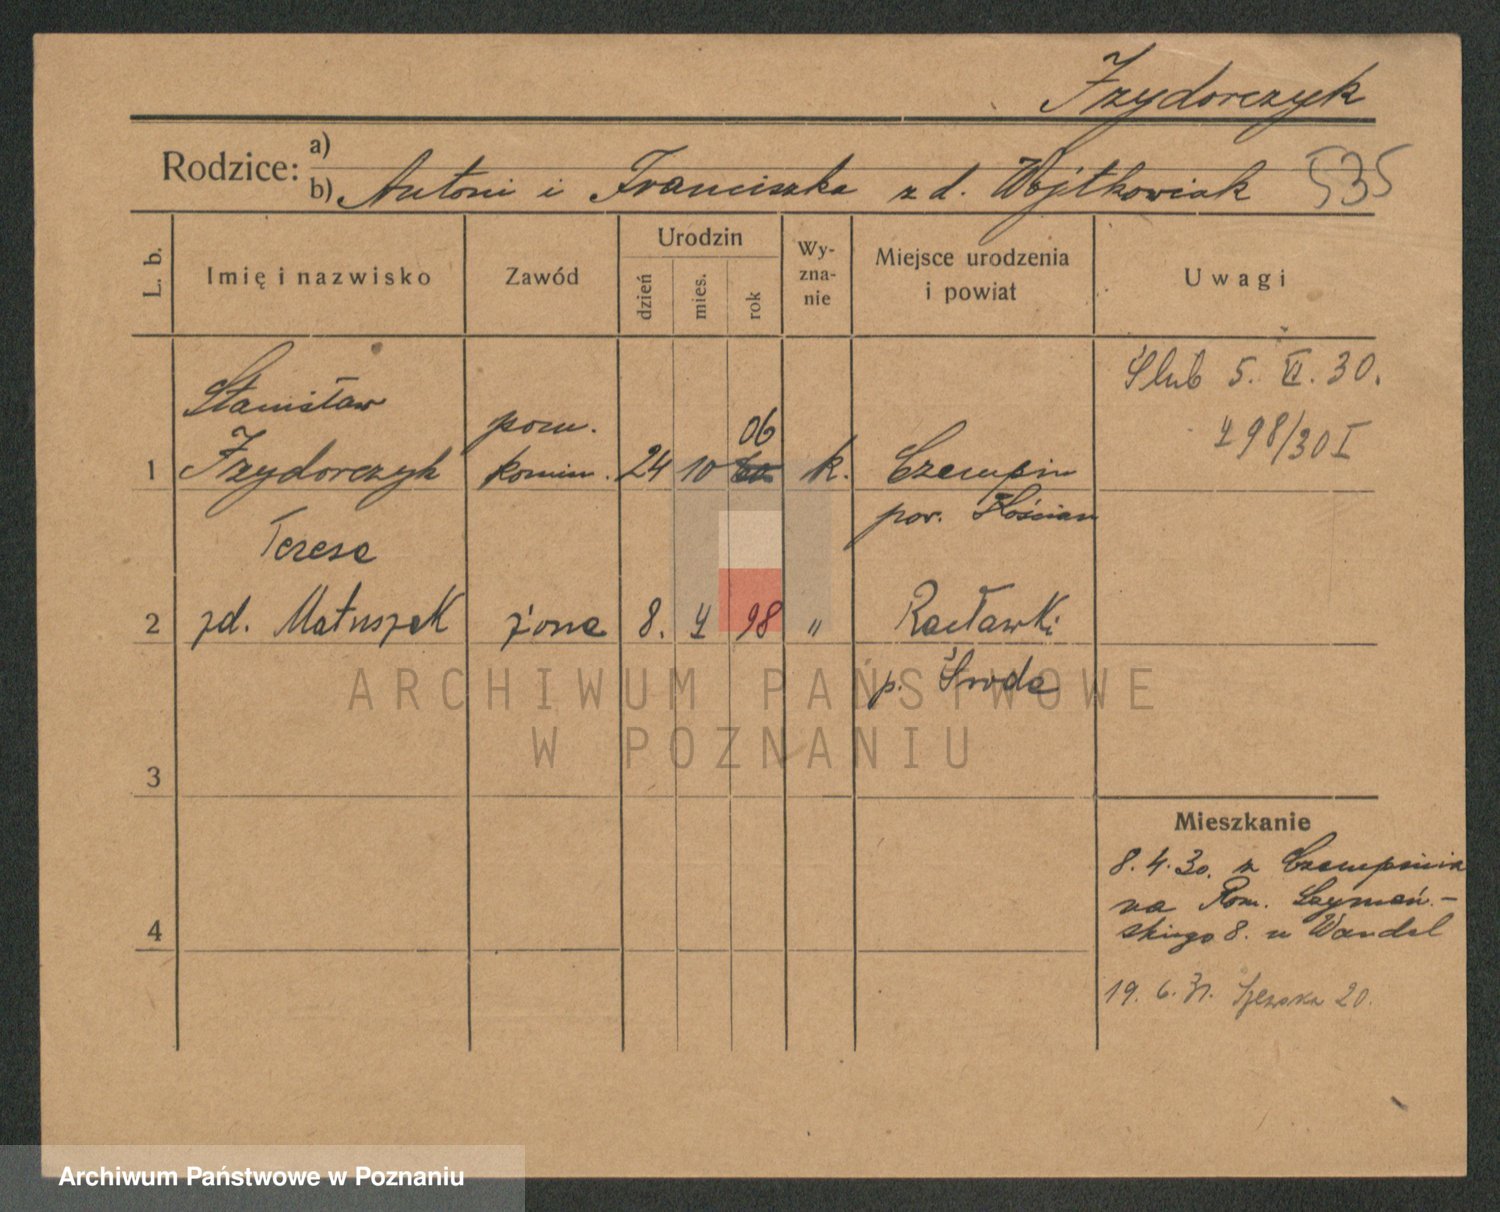 Izydorczyk
Rodzice: a)
b) Antoni i Franciszka z d. Wojtkowiak 535
L. b.
Imię i nazwisko
Zawód
Urodzin
dzień
mies.
rok
Wy-
zna-
nie
Miejsce urodzenia
i powiat
Uwagi
Stanisław
1 Izydorczyk
pom.
komin.
24 10 06
k.
Czempin
pow. Kościan
Ślub 5. VI. 30.
498/30 I
Teresa
2 zd. Matuszak żona 8. 98 "
Racławki
p. Środa
3
4
Mieszkanie
8.4.30. z Czempinia
na Rom. Szymań-
skiego 8. u Wandel
19.6.31. Szewska 20.
ARCHIWUM PAŃSTWOWE
W POZNANIU
Archiwum Państwowe w Poznaniu